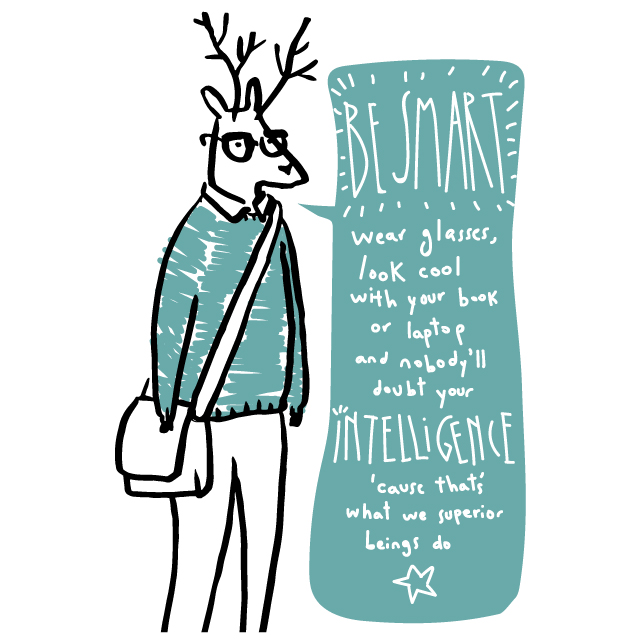 BE SMART
wear glasses,
look cool
with your book
or laptop
and nobody'll
doubt your
INTELLiGENCE
'cause thats'
what we superior
beings do